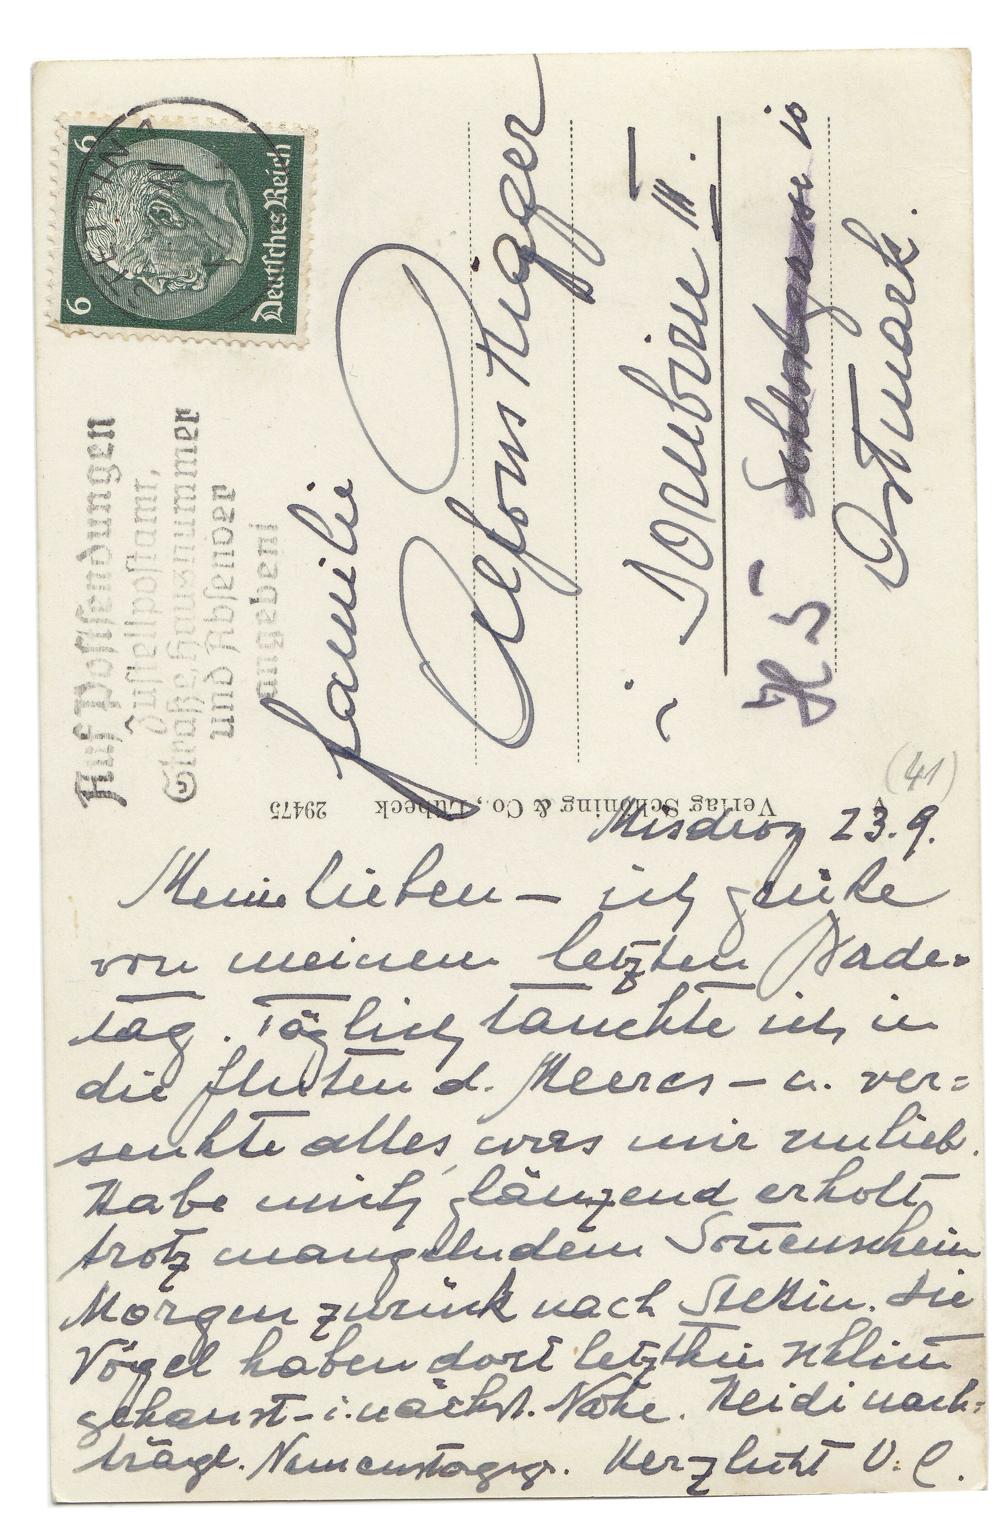 Deutsches Reich
6 6
STETTIN
Auf Postsendungen
Zustellpostamt,
Straße Hausnummer
und Absender
angeben!
Familie
Alfons Rigger
i Dornbirn III.
H 5 Schlossgasse 10
Ostmark.
Verlag Schöning & Co., Lübeck 29475
(41)
Misdroy 23.9.
Meine lieben – ich grüße
von meinem letzten Bade-
tag. Täglich tauchte ich in
die fluten d. Meeres – u. ver=
senkte alles was mir unlieb.
Habe mich glänzend erholt
trotz mangelndem Sonnenschein
Morgen zurück nach Stettin. Die
Vögel haben dort letzthin schlimm
gehaust – i. nächst. Nähe. Heidi nach=
trägl. Namenstagsgr. Herzlichst